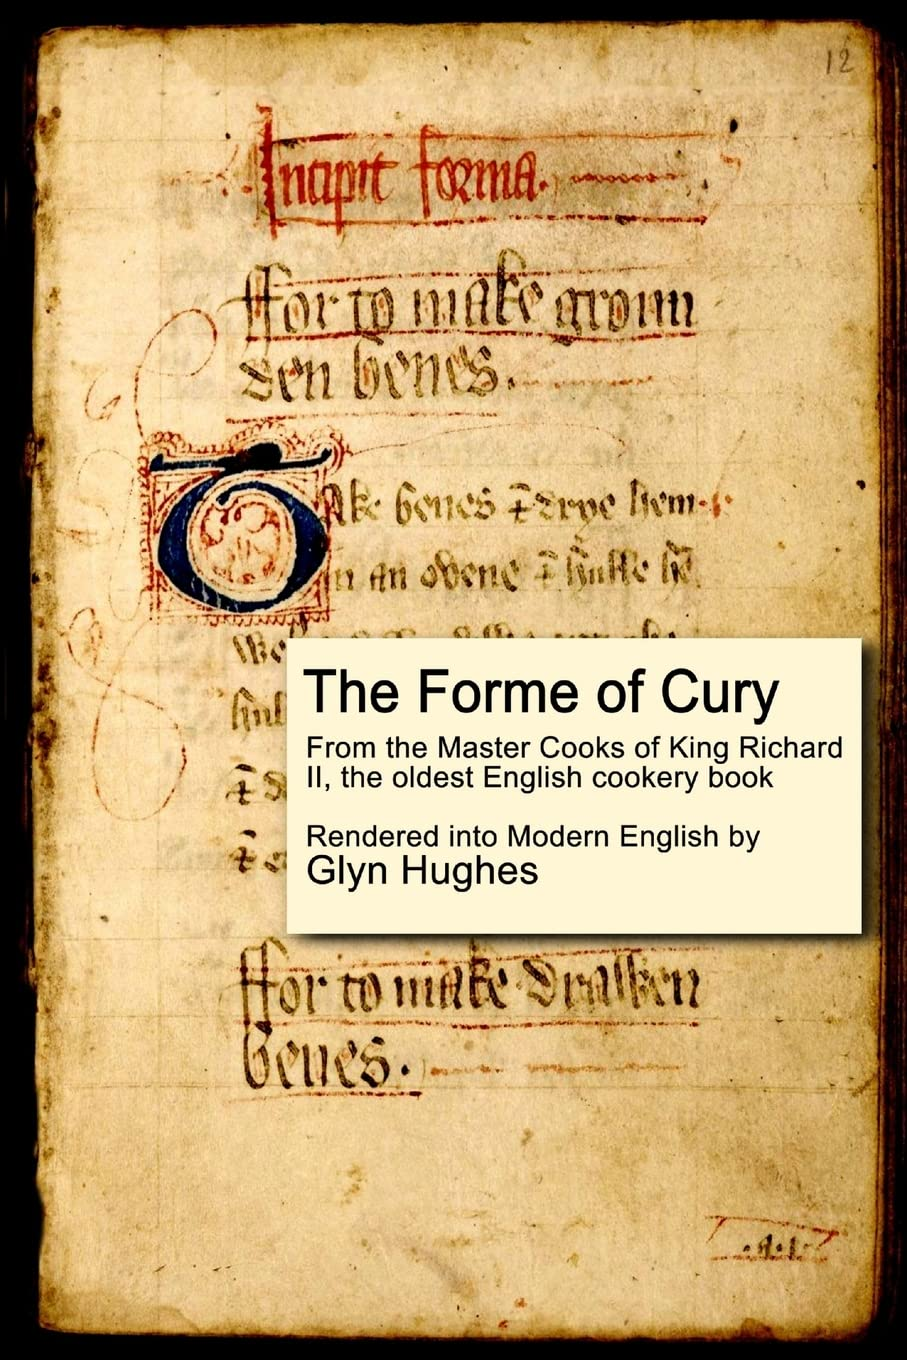 12
Incipit forma.
ffor to make groun
den benes.
Take benes ⁊ drye hem
in an ovene ⁊ hulle
The Forme of Cury
From the Master Cooks of King Richard
II, the oldest English cookery book
Rendered into Modern English by
Glyn Hughes
ffor to make drawen
benes.